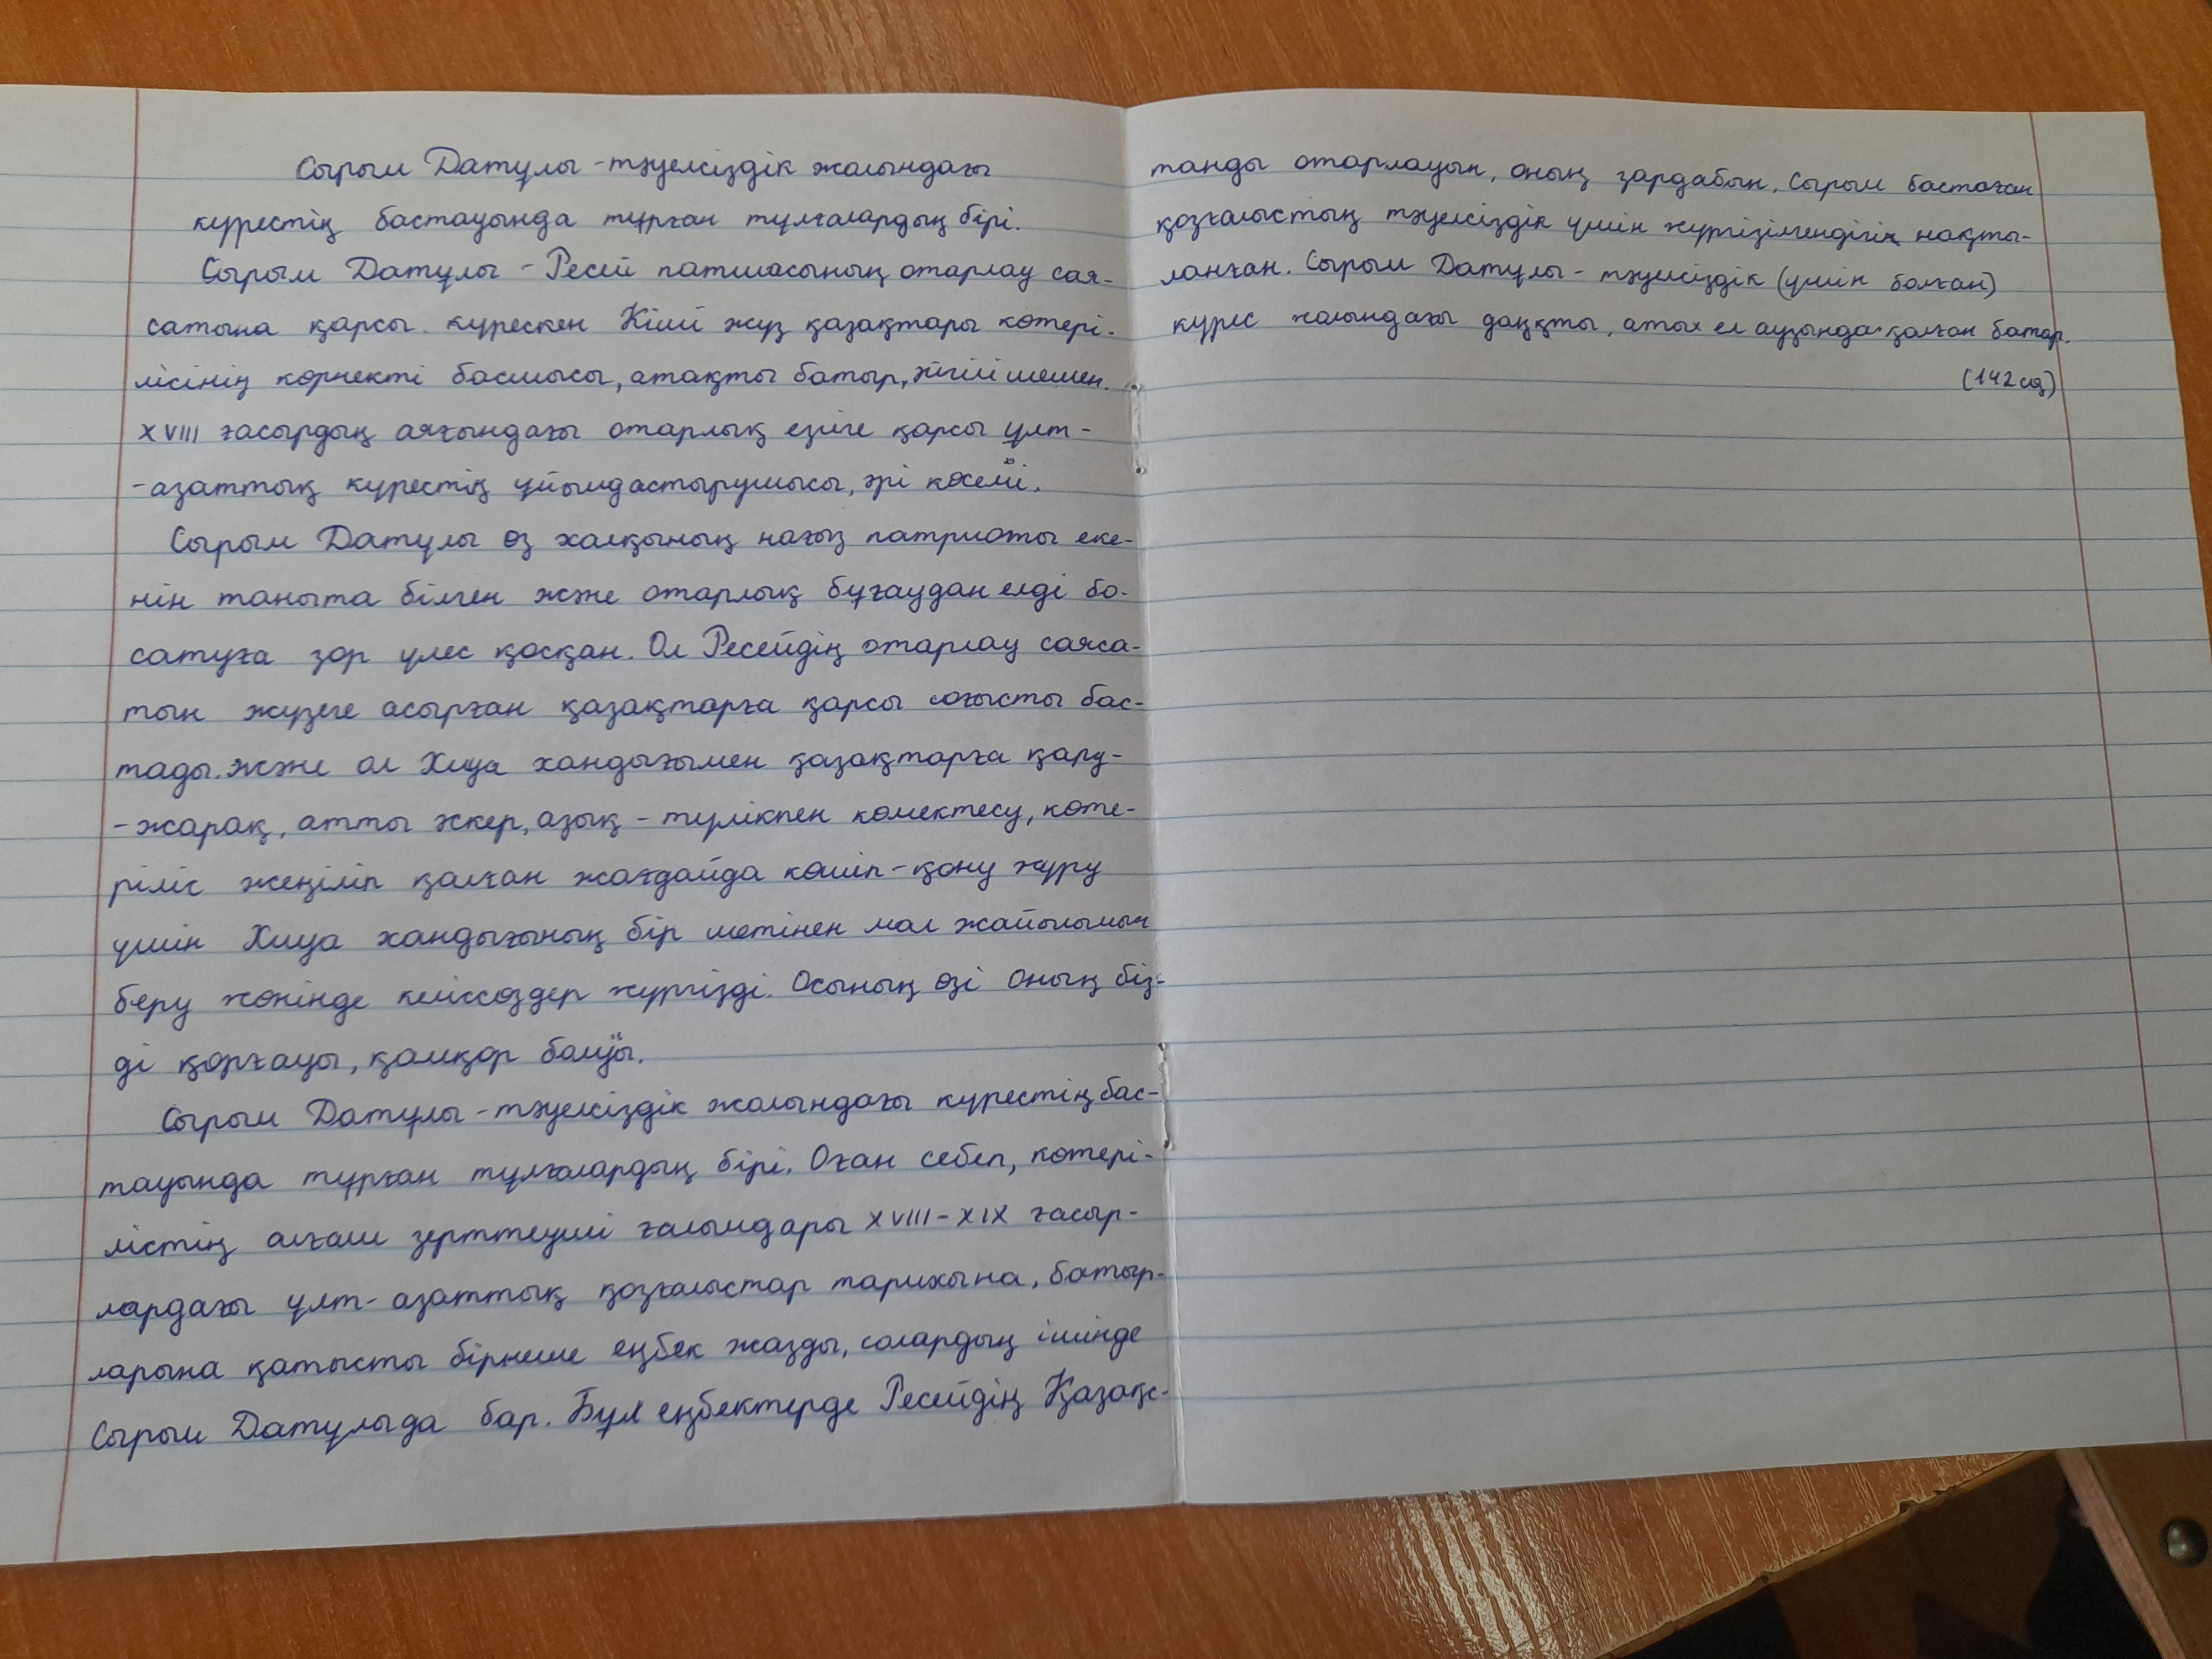 Сырым Датұлы - тәуелсіздік жолындағы
күрестің бастауында тұрған тұлғалардың бірі.
Сырым Датұлы - Ресей патшасының отарлау сая-
сатына қарсы күрескен Кіші жүз қазақтары көтері-
лісінің көрнекті басшысы, атақты батыр, әйгілі шешен.
XVIII ғасырдың аяғындағы отарлық езіге қарсы ұлт-
-азаттық күрестің ұйымдастырушысы, әрі көсемі.
Сырым Датұлы өз халқының нағыз патриоты еке-
нін таныта білген және отарлық бұғаудан елді бо-
сатуға зор үлес қосқан. Ол Ресейдің отарлау сояса-
тын жүзеге асырған қазақтарға қарсы соғысты бас-
тады. және ол Хиуа хандығымен қазақтарға қару-
-жарақ, атты әскер, азық - түлікпен көмектесу, көте-
ріліс жеңіліп қалған жағдайда көшіп-қону жүру
үшін Хиуа хандығының бір шетінен мал жайылымын
беру жөнінде келіссөздер жүргізді. Осының өзі оның біз-
ді қорғауы, қамқор болуы.
Сырым Датұлы - тәуелсіздік жолындағы күрестің бас-
тауында тұрған тұлғалардың бірі. Оған себеп, көтері-
лістің алғаш зерттеуші ғалымдары XVIII - XIX ғасыр-
лардағы ұлт - азаттық қозғалыстар тарихына, батыр-
ларына қатысты бірнеше еңбек жазды, солардың ішінде
Сырым Датұлыда бар. Бұл еңбектерде Ресейдің Қазақс-
танды отарлауын, оның зардабын, Сырым бастаған
қозғалыстың тәуелсіздік үшін жүргізілгендігін нақты-
ланған. Сырым Датұлы - тәуелсіздік (үшін болған)
күрес жолындағы даңқты, аты ел аузында қалған батыр.
(142 сөз)